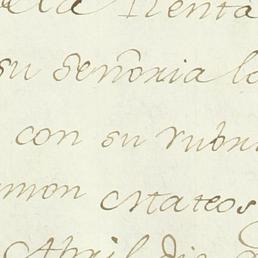 ela Renta
su señoria lo
con su rubri
amon Mateos
Abril die